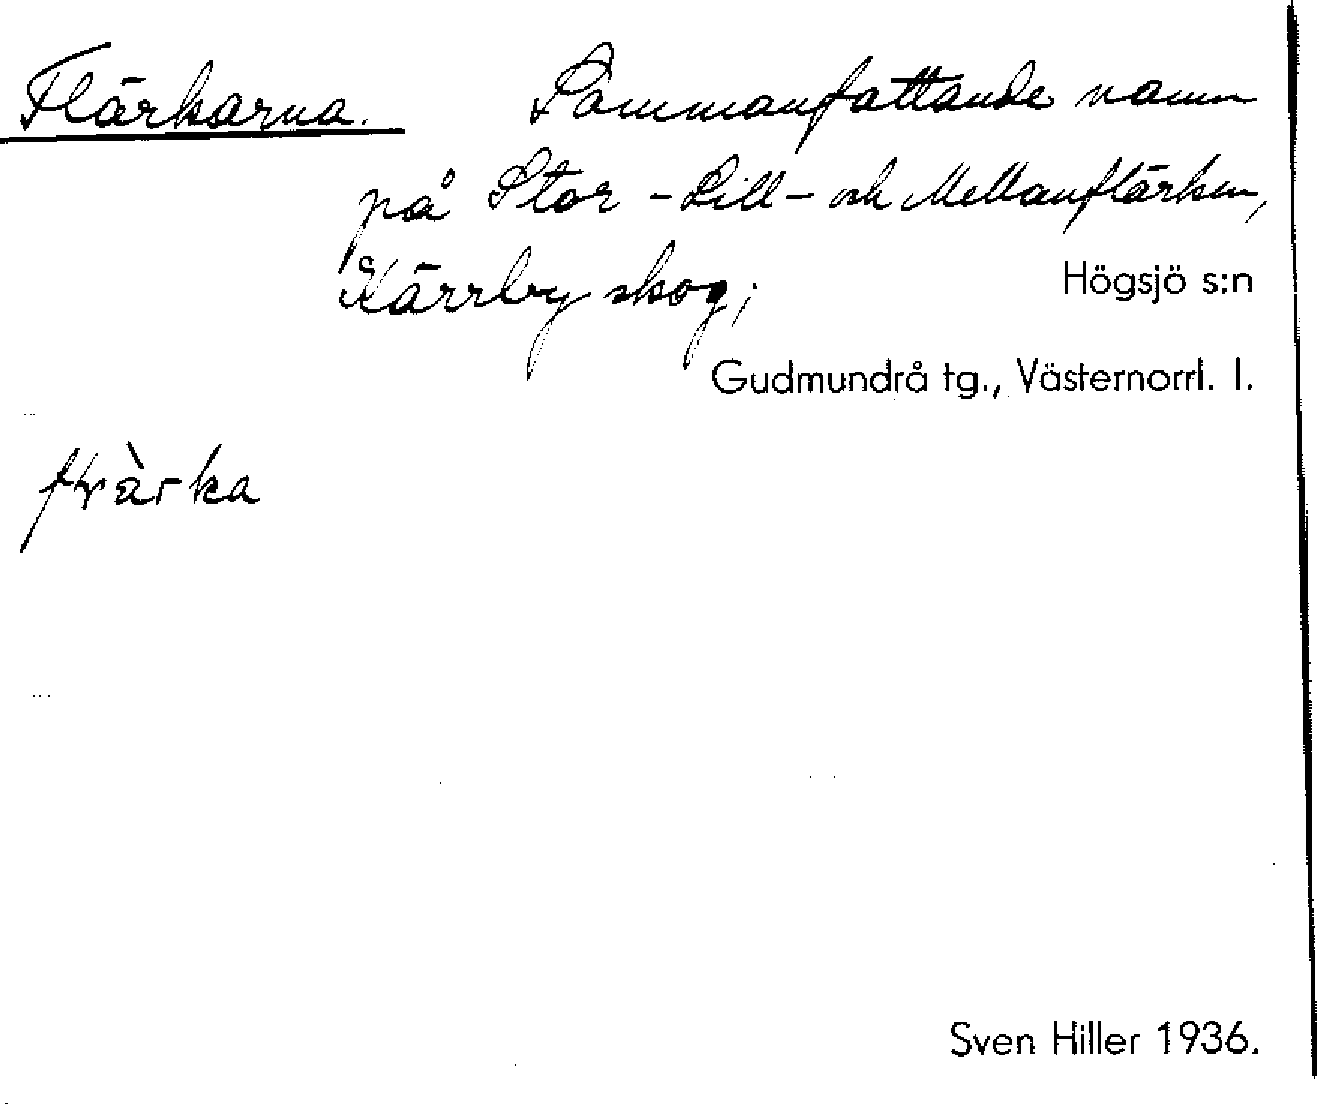 Flärkarna. Sammanfattande namn
på Stor - Lill - och Mellanflärken,
Kärrby skog; Högsjö s:n
Gudmundrå tg., Västernorrl. l.
Sven Hiller 1936.